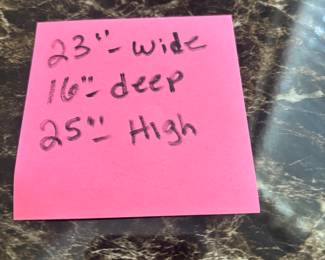 23"- wide
16"- deep
25"- High